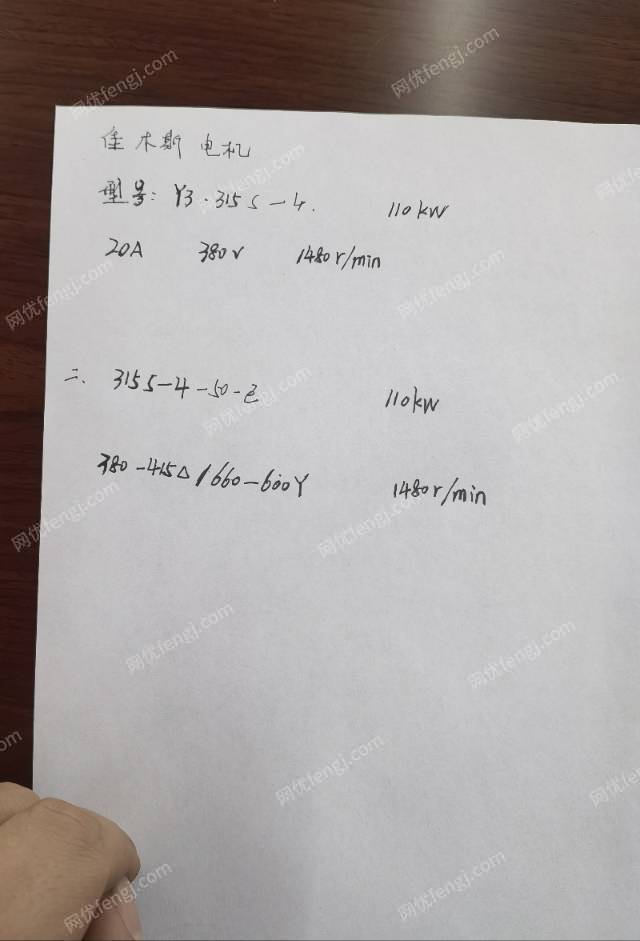 佳木斯电机
型号: Y3.315S-4. 110kW
20A 380V 1480r/min
二. 315S-4-50-
110kW
380-415△/660-600Y 1480r/min
网优fengj.com